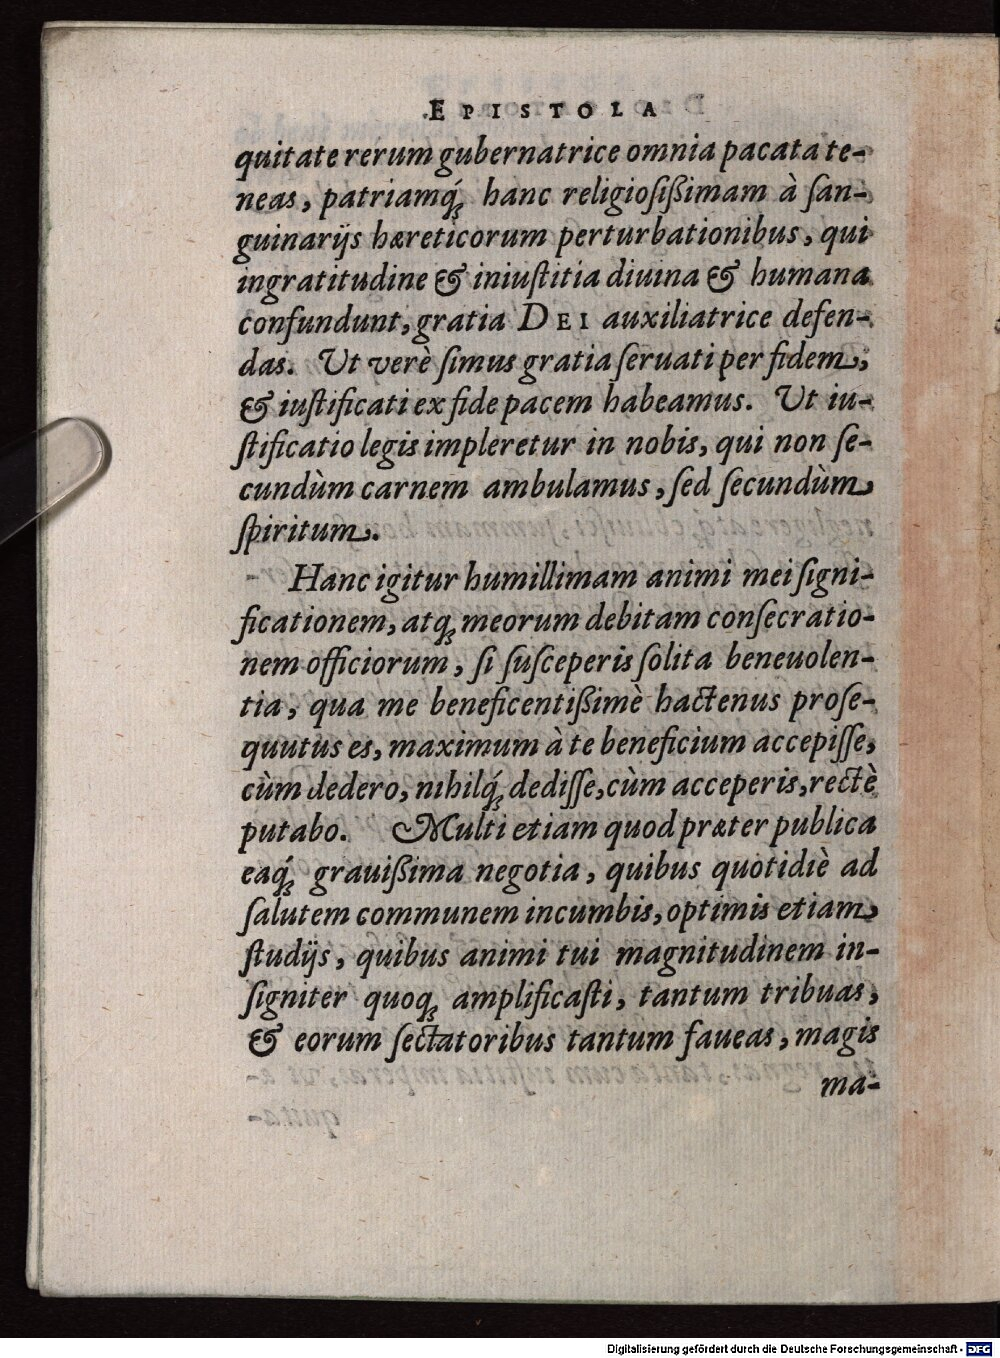 EPISTOLA
quitate rerum gubernatrice omnia pacata te-
neas, patriamq́ꝫ hanc religiosißimam à ſan-
guinarijs hæreticorum perturbationibus, qui
ingratitudine & iniuſtitia diuina & humana
confundunt, gratia DEI auxiliatrice defen-
das. Ut verè ſimus gratia ſeruati per fidem,
& iuſtificati ex fide pacem habeamus. Ut iu-
ſtificatio legis impleretur in nobis, qui non ſe-
cundùm carnem ambulamus, ſed ſecundùm
ſpiritum.
Hanc igitur humillimam animi mei ſigni-
ficationem, atqꝫ meorum debitam conſecratio-
nem officiorum, ſi ſuſceperis ſolita beneuolen-
tia, qua me beneficentißimè hactenus proſe-
quutus es, maximum à te beneficium accepiſſe,
cùm dedero, nihilq́ꝫ dediſſe, cùm acceperis, rectè
putabo. Multi etiam quod præter publica
eaq́ꝫ grauißima negotia, quibus quotidiè ad
ſalutem communem incumbis, optimis etiam
ſtudijs, quibus animi tui magnitudinem in-
ſigniter quoqꝫ amplificaſti, tantum tribuas,
& eorum ſectatoribus tantum faueas, magis
ma-
Digitalisierung gefördert durch die Deutsche Forschungsgemeinschaft - DFG